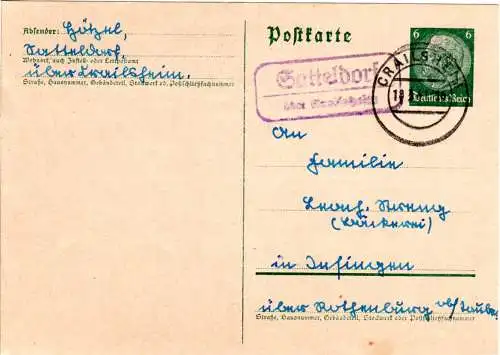 Absender: Hötzel,
Satteldorf
Wohnort, auch Zustell- oder Leitpostamt
über Crailsheim.
Straße, Hausnummer, Gebäudeteil, Stockwerk od. Postschließfachnummer
Postkarte
6 6
Deutsches Reich
CRAILSHEIM
Satteldorf
über Crailsheim
An
Familie
Leonh. Streng
(Bäckerei)
in Insingen
über Rothenburg ob/Tauber
Straße, Hausnummer, Gebäudeteil, Stockwerk oder Postschließfachnummer